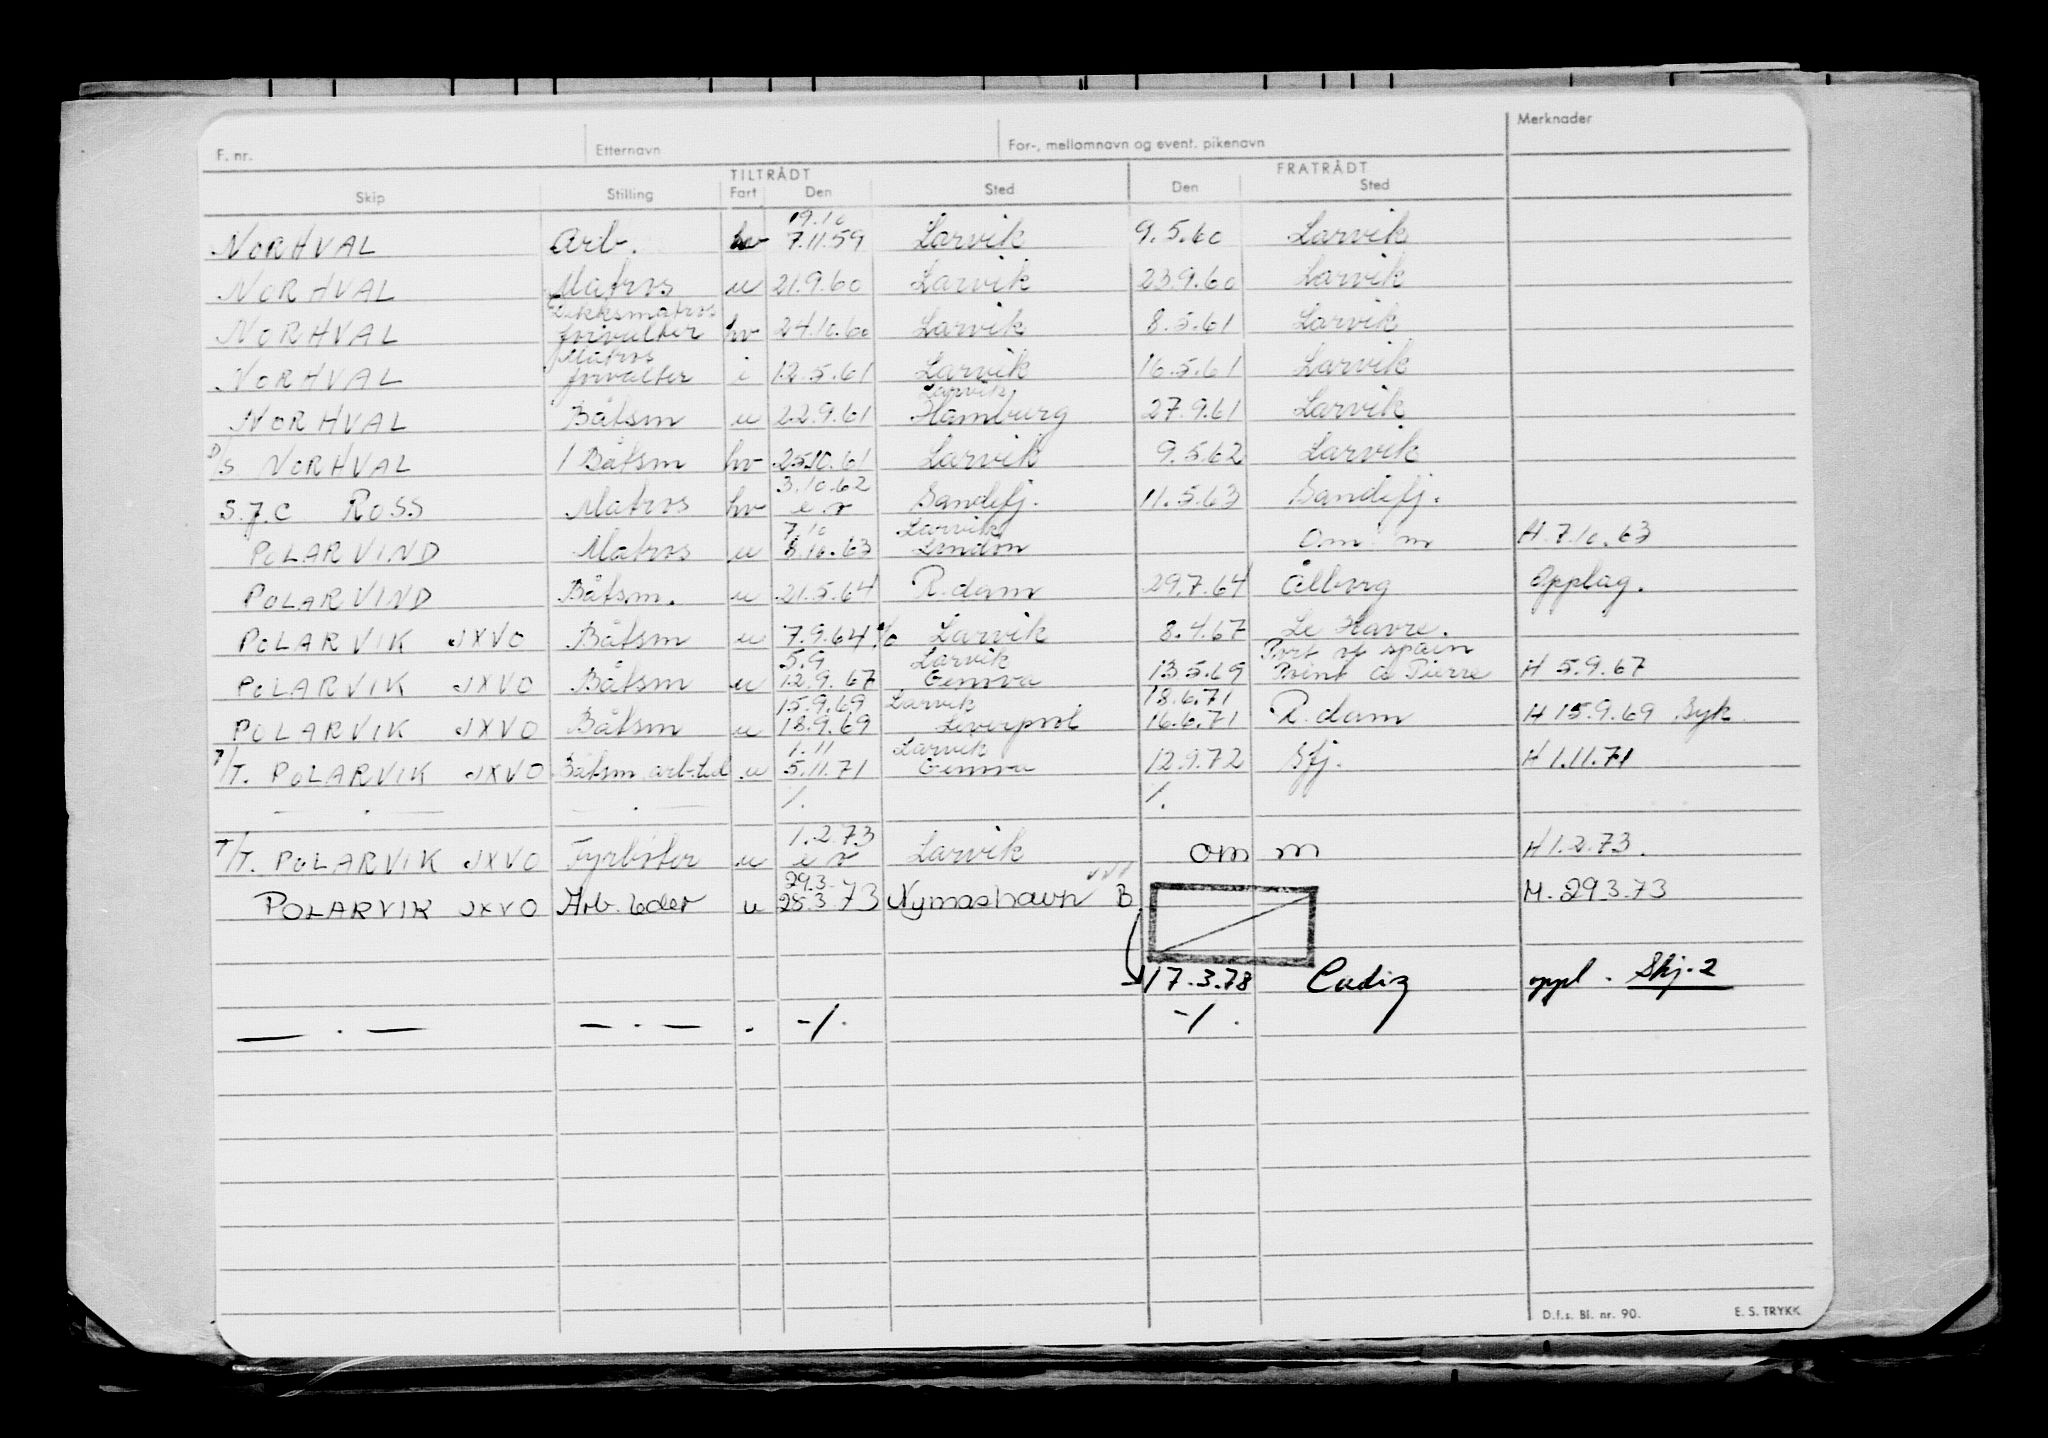 F. nr. Etternavn For-, mellomnavn og event. pikenavn Merknader
TILTRÅDT FRATRÅDT
Skip Stilling Fart Den Sted Den Sted
19.10
NORHVAL Arb. hv 7.11.59 Larvik 9.5.60 Larvik
NORHVAL Matros u 21.9.60 Larvik 23.9.60 Larvik
Dekksmatros
NORHVAL forvalter hv 24.10.60 Larvik 8.5.61 Larvik
Matros
NORHVAL forvalter i 12.5.61 Larvik 16.5.61 Larvik
Larvik
NORHVAL Båtsm u 22.9.61 Hamburg 27.9.61 Larvik
D/S NORHVAL 1 Båtsm hv 25.10.61 Larvik 9.5.62 Larvik
3.10.62
S.J.C ROSS Matros hv e o Sandefj. 11.5.63 Sandefj.
7.10 Larvik
POLARVIND Matros u 8.10.63 London Om m H 7.10.63
POLARVIND Båtsm. u 21.5.64 R.dam 29.7.64 Ålborg Opplag.
POLARVIK JXVO Båtsm u 7.9.64 % Larvik 8.4.67 Le Havre.
5.9 Larvik Port of spain
POLARVIK JXVO Båtsm u 12.9.67 Genova 13.5.69 Point a Pierre H 5.9.67
15.9.69 Larvik 18.6.71
POLARVIK JXVO Båtsm u 18.9.69 Liverpool 16.6.71 R.dam H 15.9.69 Syk
1.11 Larvik
T/T. POLARVIK JXVO Båtsm arb.led u 5.11.71 Genova 12.9.72 Sfj. H 1.11.71
— . — — . — /. /.
1.2.73
T/T. POLARVIK JXVO Fyrbøter u e o Larvik om m H 1.2.73.
29.3
POLARVIK JXVO Arb. leder u 28.3.73 Nymashavn B M. 29.3.73
17.3.78 Cadiz oppl. Skj. 2
— . — — . — . -/. -/.
D.f.s. Bl. nr. 90. E. S. TRYKK